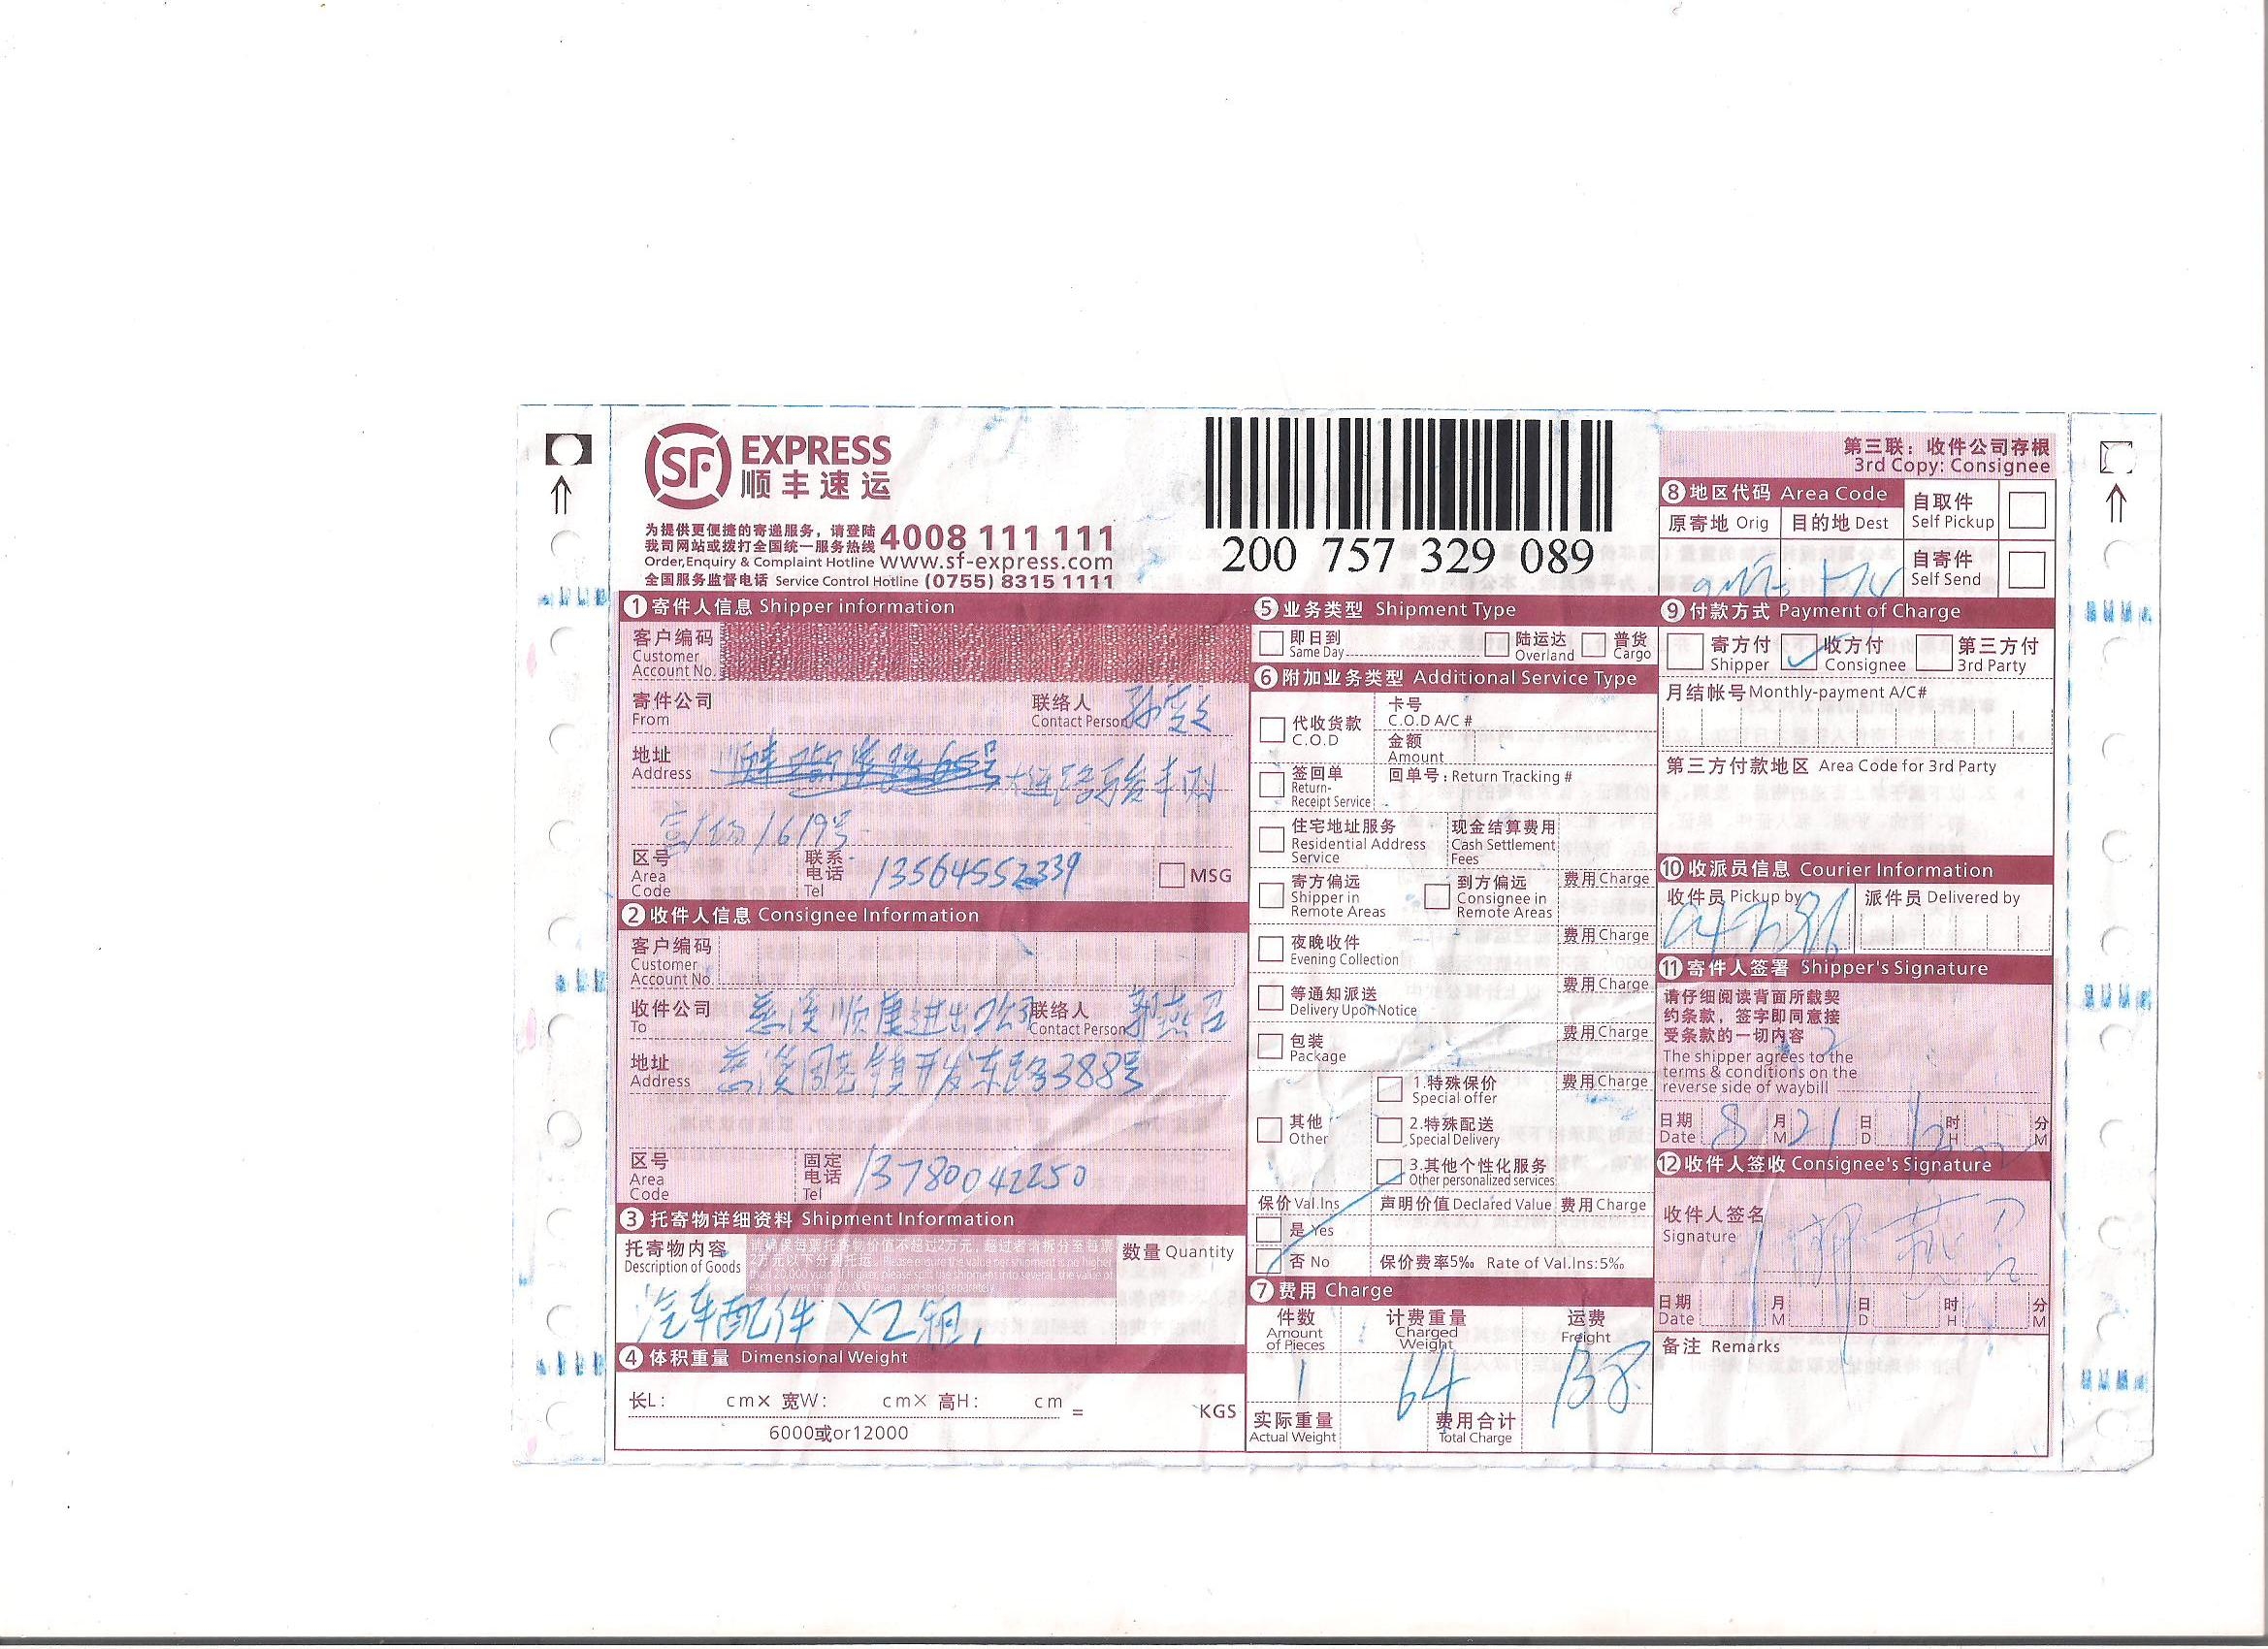 SF EXPRESS
顺丰速运
为提供更便捷的寄递服务，请登陆
我司网站或拨打全国统一服务热线 4008 111 111
Order,Enquiry & Complaint Hotline www.sf-express.com
全国服务监督电话 Service Control Hotline (0755) 8315 1111
200 757 329 089
第三联：收件公司存根
3rd Copy: Consignee
8 地区代码 Area Code
原寄地 Orig 目的地 Dest
自取件 Self Pickup
自寄件 Self Send
1 寄件人信息 Shipper information
客户编码
Customer
Account No.
寄件公司 From
联络人 Contact Person
地址 Address
1619号
区号 Area Code
联系电话 Tel 13564552339
MSG
2 收件人信息 Consignee Information
客户编码
Customer
Account No.
收件公司 To 慈溪顺康进出公司
联络人 Contact Person 郭燕召
地址 Address 慈溪周巷镇开发东路388号
区号 Area Code
固定电话 Tel 13780042250
3 托寄物详细资料 Shipment Information
托寄物内容 Description of Goods
请确保每票托寄物价值不超过2万元，超过者请拆分至每票
2万元以下分别托运。Please ensure the value per shipment is no higher
than 20,000 yuan. If higher, please split the shipment into several, the value of
each is lower than 20,000 yuan, and send separately.
数量 Quantity
汽车配件 X2箱.
4 体积重量 Dimensional Weight
长L: cm× 宽W: cm× 高H: cm = KGS
6000或or12000
5 业务类型 Shipment Type
即日到 Same Day
陆运达 Overland
普货 Cargo
6 附加业务类型 Additional Service Type
代收货款 C.O.D
卡号 C.O.D A/C #
金额 Amount
签回单 Return-Receipt Service
回单号：Return Tracking #
住宅地址服务 Residential Address Service
现金结算费用 Cash Settlement Fees
寄方偏远 Shipper in Remote Areas
到方偏远 Consignee in Remote Areas
费用 Charge
夜晚收件 Evening Collection
费用 Charge
等通知派送 Delivery Upon Notice
费用 Charge
包装 Package
费用 Charge
其他 Other
1.特殊保价 Special offer
费用 Charge
2.特殊配送 Special Delivery
3.其他个性化服务 Other personalized services
保价 Val.Ins 声明价值 Declared Value 费用 Charge
是 Yes
否 No 保价费率5‰ Rate of Val.Ins:5‰
7 费用 Charge
件数 Amount of Pieces
计费重量 Charged Weight
运费 Freight
1 64 138
实际重量 Actual Weight
费用合计 Total Charge
9 付款方式 Payment of Charge
寄方付 Shipper
收方付 Consignee
第三方付 3rd Party
月结帐号 Monthly-payment A/C#
第三方付款地区 Area Code for 3rd Party
10 收派员信息 Courier Information
收件员 Pickup by 派件员 Delivered by
11 寄件人签署 Shipper's Signature
请仔细阅读背面所载契
约条款，签字即同意接
受条款的一切内容
The shipper agrees to the
terms & conditions on the
reverse side of waybill
日期 Date 8 月 M 21 日 D 时 H 分 M
12 收件人签收 Consignee's Signature
收件人签名 Signature 郭燕召
日期 Date 月 M 日 D 时 H 分 M
备注 Remarks